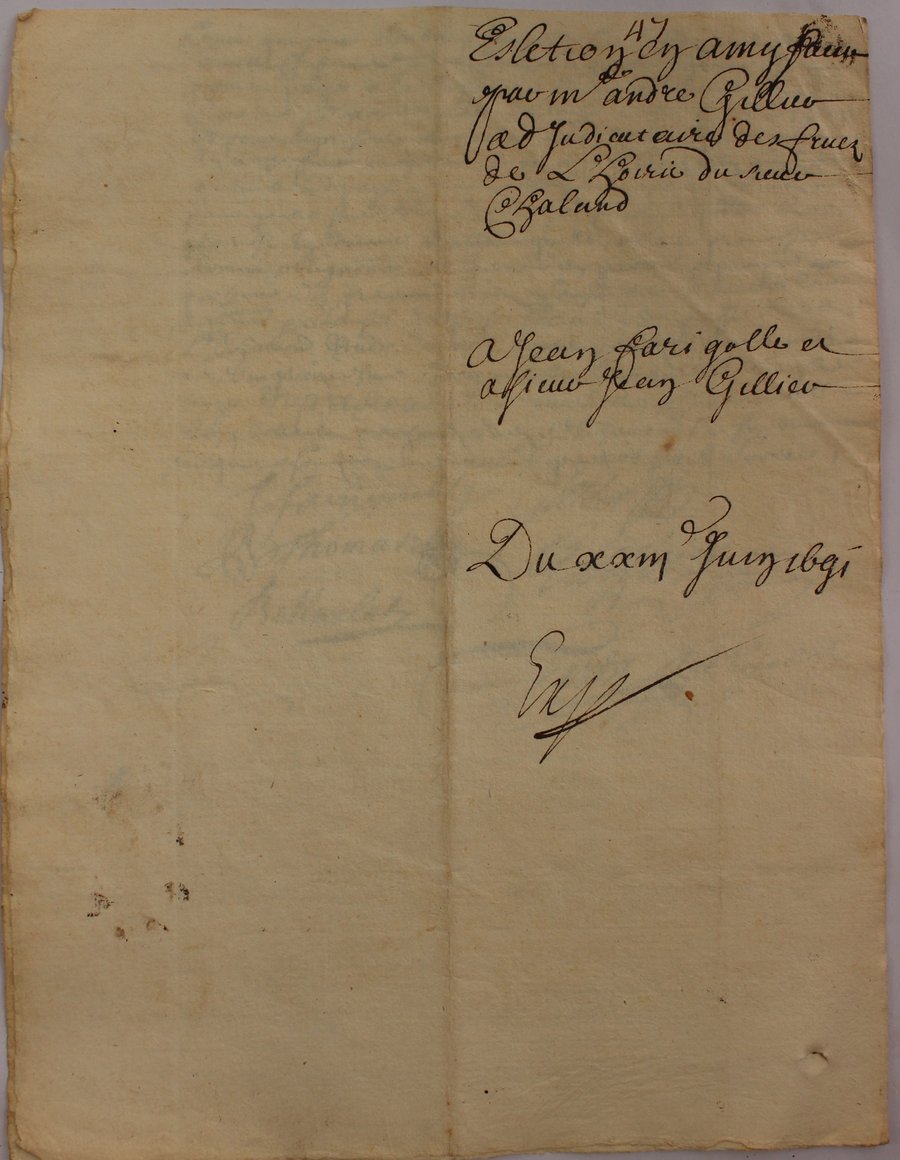 47
Esletion en amy faicte
par mre andre Gillier
adJudicataire des fruez
de LHoirie du sieur
Chaland
A Jean farigolle et
a sieur Jean Gillier
Du xxiiie Juin 1691
Exp